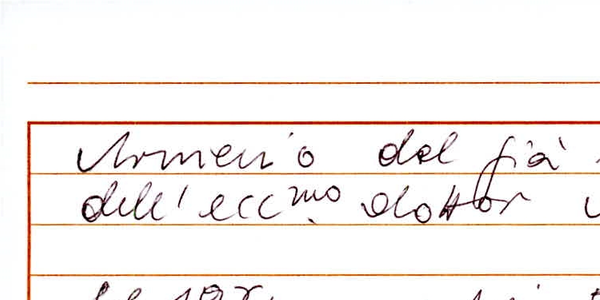 Armenio del già
dell'ecc.mo dottor